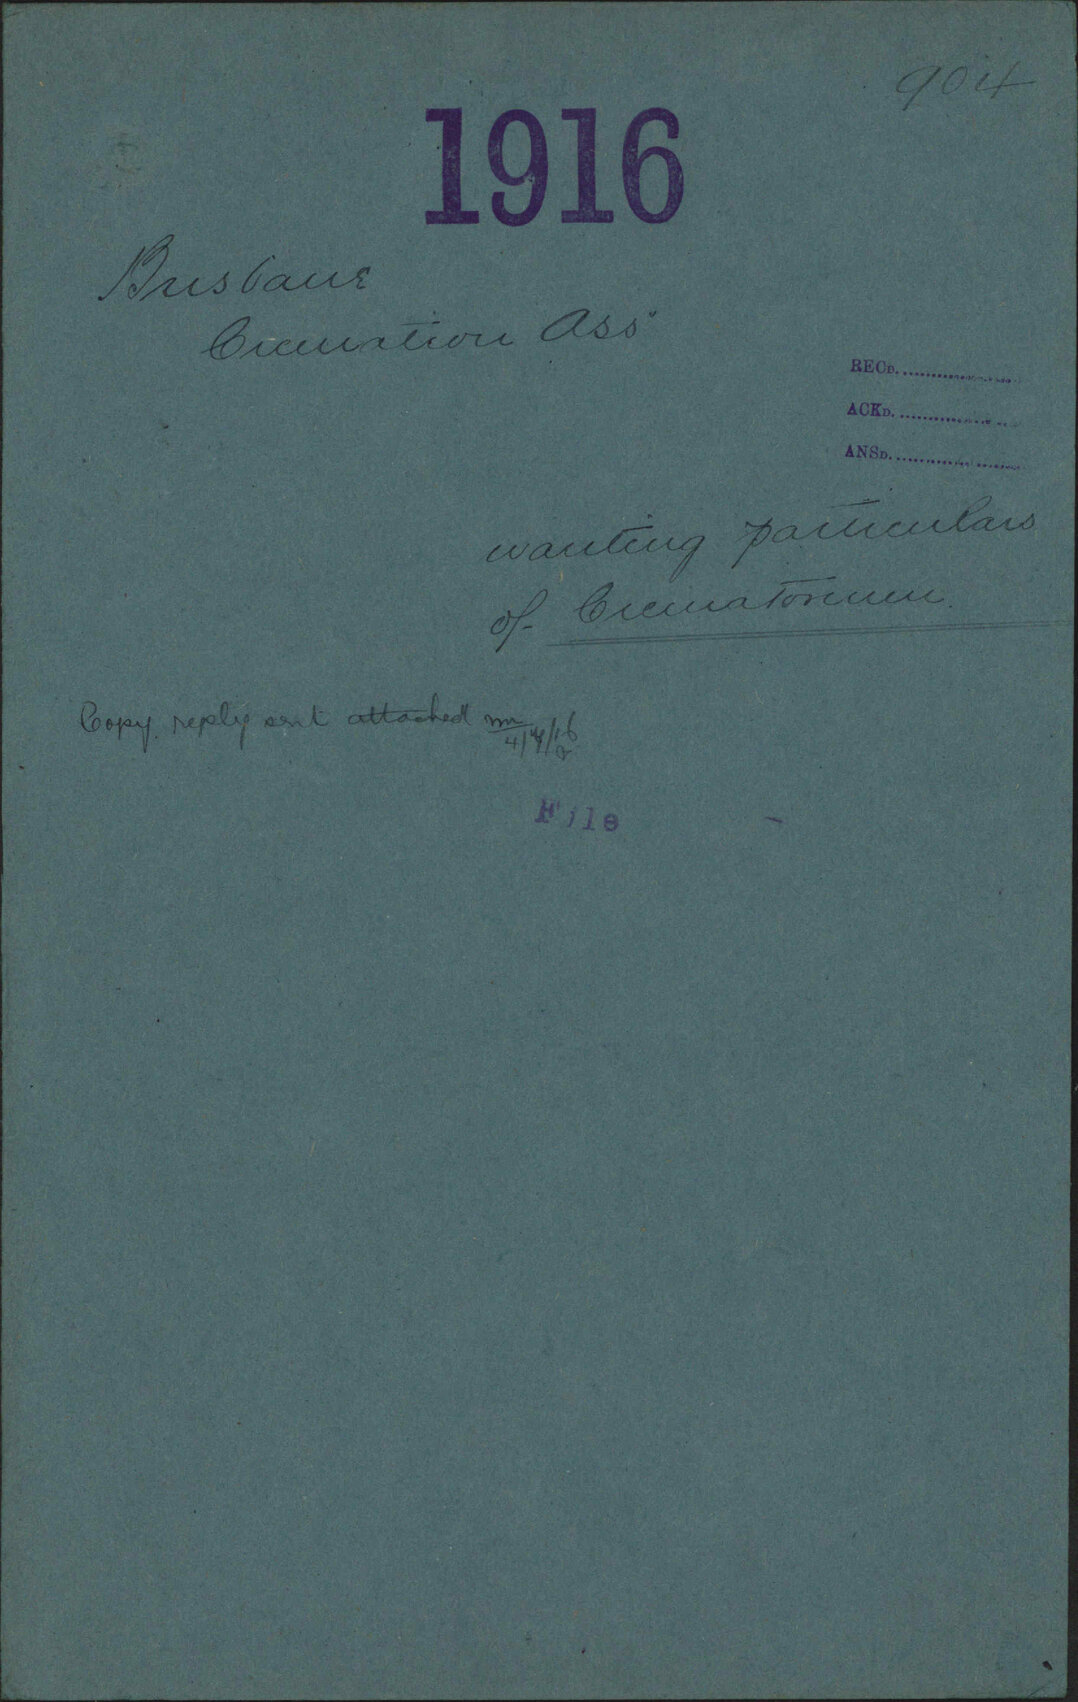 904
1916
Brisbane
Cremation Ass
RECD.
ACKD.
ANSD.
wanting particulars
of Crematorium
Copy reply sent attached
File